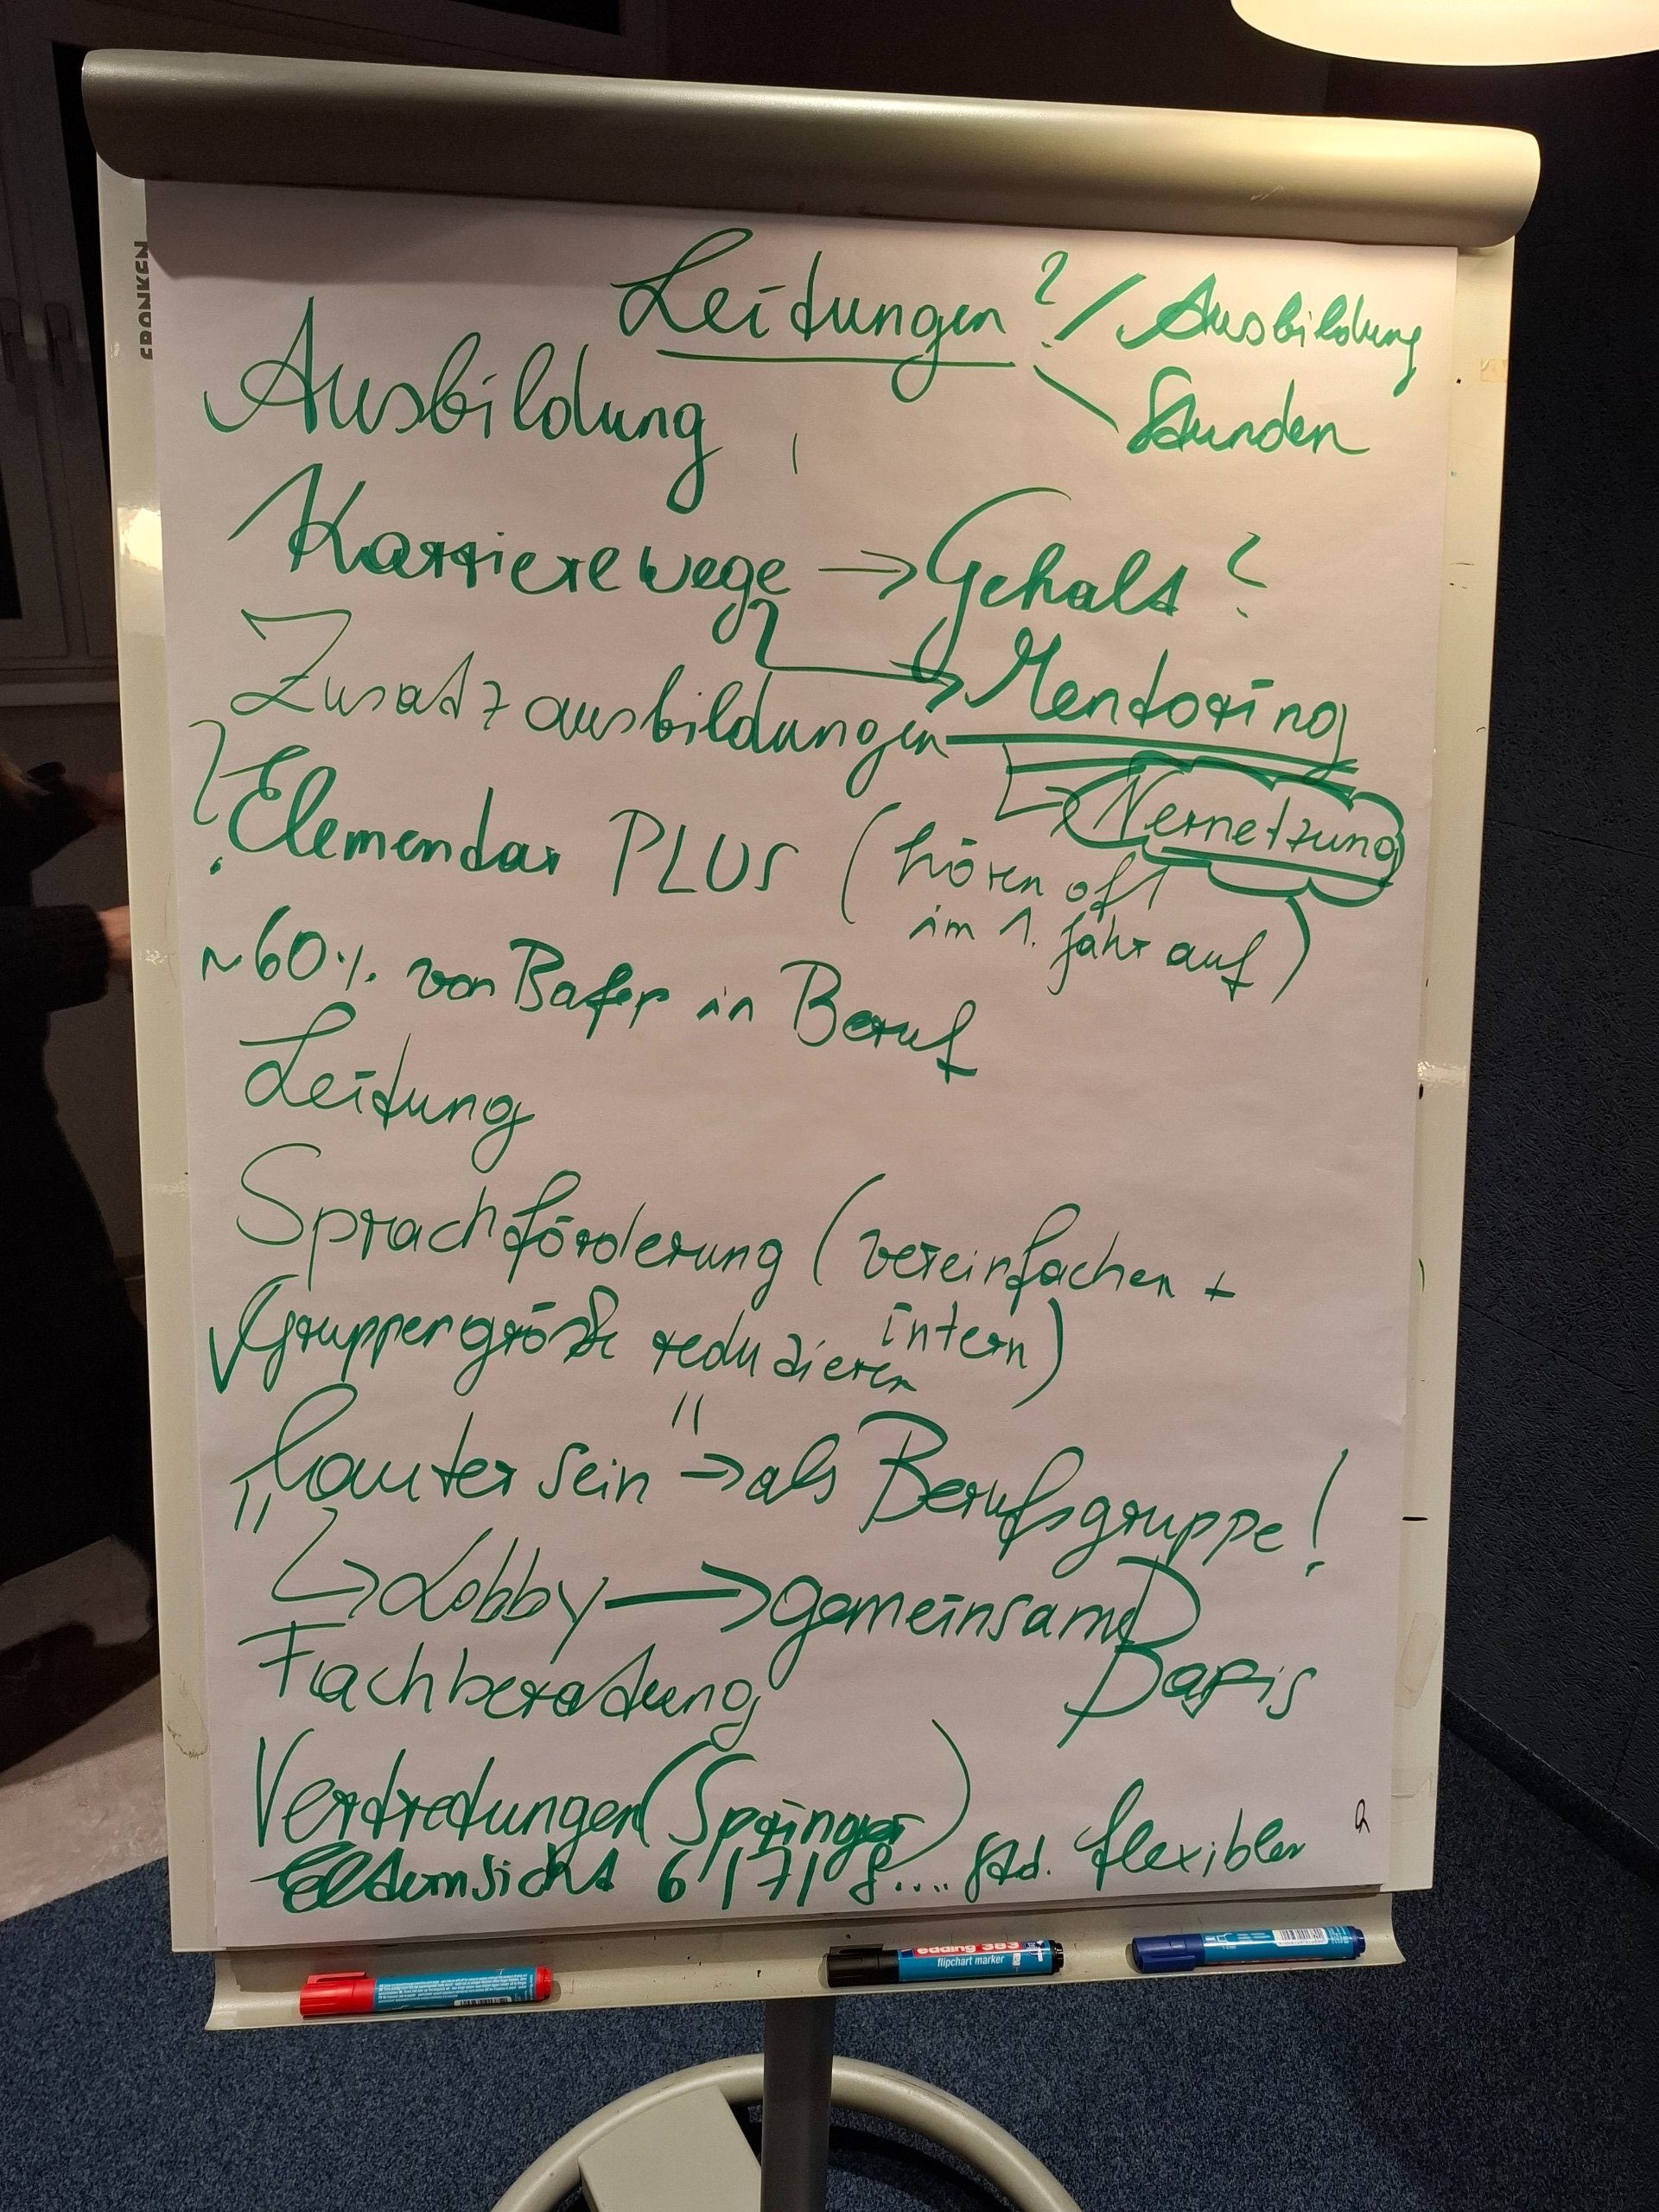 Leitungen ? / Ausbildung
\ Stunden
Ausbildung
Karrierewege → Gehalt ?
→ Mentoring
Zusatzausbildungen
↳ Vernetzung
? Elementar PLUS (hören oft
im 1. Jahr auf)
~60% von Bafep in Beruf
Leitung
Sprachförderung (vereinfachen +
intern)
√ Gruppengröße reduzieren
"lauter sein" → als Berufsgruppe!
↳ Lobby → gemeinsame
Basis
Fachberatung
Vertretungen (Springer)
Elternsicht 6 / 7 / 8 .... Std. flexibler
FRANKEN
edding 383
flipchart marker